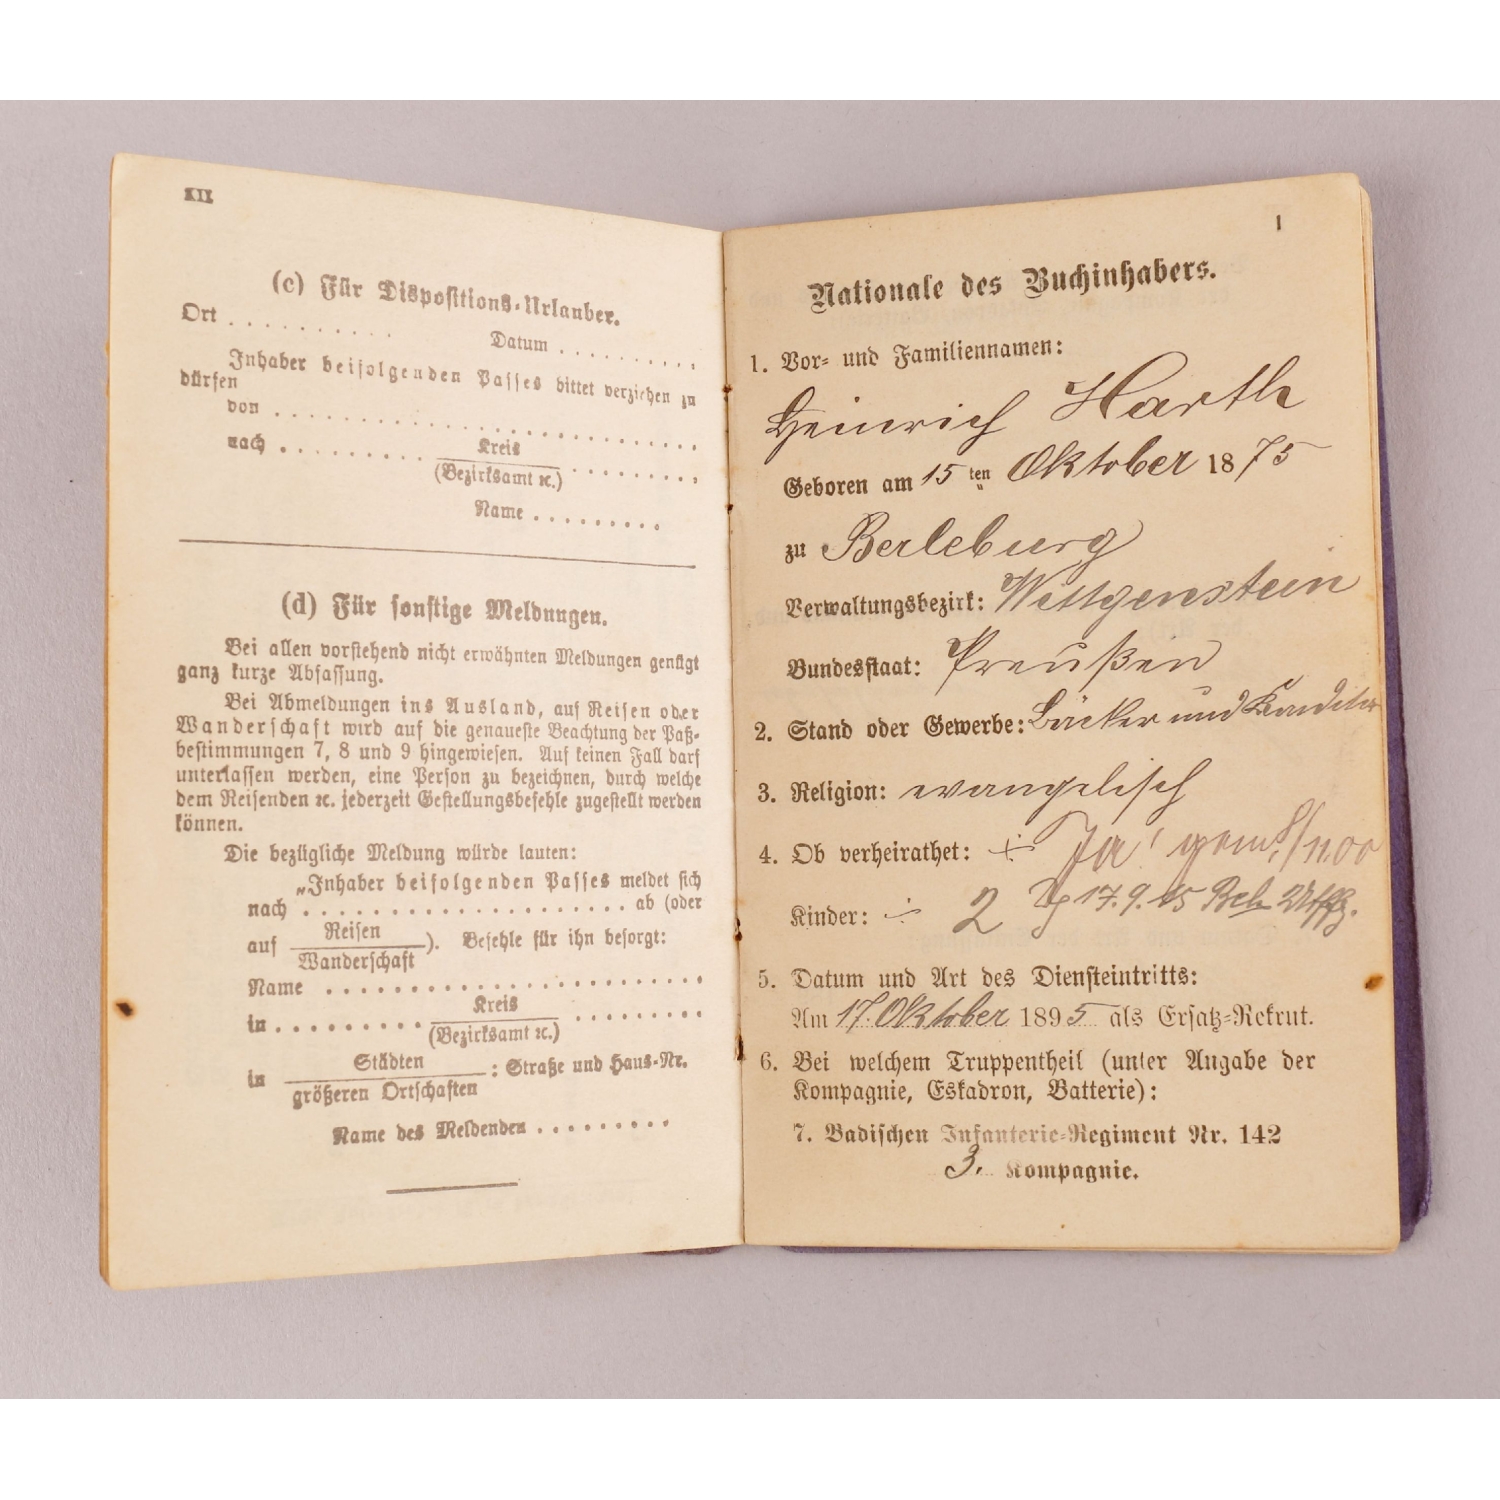 XII
(c) Für Dispositions-Urlauber.
Ort . . . . . . . . . . Datum . . . . . . . . . .
Inhaber beifolgenden Passes bittet verziehen zu
dürfen
von . . . . . . . . . . . . . . . . . . . . . . . . .
nach . . . . . . . . . Kreis . . . . . . . . .
(Bezirksamt ꝛc.)
Name . . . . . . . . .
(d) Für sonstige Meldungen.
Bei allen vorstehend nicht erwähnten Meldungen genügt
ganz kurze Abfassung.
Bei Abmeldungen ins Ausland, auf Reisen oder
Wanderschaft wird auf die genaueste Beachtung der Paß-
bestimmungen 7, 8 und 9 hingewiesen. Auf keinen Fall darf
unterlassen werden, eine Person zu bezeichnen, durch welche
dem Reisenden ꝛc. jederzeit Gestellungsbefehle zugestellt werden
können.
Die bezügliche Meldung würde lauten:
„Inhaber beifolgenden Passes meldet sich
nach . . . . . . . . . . . . . . . . . . . . ab (oder
auf Reisen
Wanderschaft ). Befehle für ihn besorgt:
Name . . . . . . . . . . . . . . . . . . . . . . .
in . . . . . . . . . Kreis . . . . . . . . .
(Bezirksamt ꝛc.)
in Städten
größeren Ortschaften : Straße und Haus-Nr.
Name des Meldenden . . . . . . . . .
1
Nationale des Buchinhabers.
1. Vor- und Familiennamen:
Heinrich Harth
Geboren am 15ten Oktober 1875
zu Berleburg
Verwaltungsbezirk: Wittgenstein
Bundesstaat: Preußen
2. Stand oder Gewerbe: Bäcker und Konditor
3. Religion: evangelisch
4. Ob verheirathet: ÷ Ja!
Kinder: ÷ 2 17.9.15
5. Datum und Art des Diensteintritts:
Am 17. Oktober 1895 als Ersatz-Rekrut.
6. Bei welchem Truppentheil (unter Angabe der
Kompagnie, Eskadron, Batterie):
7. Badischen Infanterie-Regiment Nr. 142
3. Kompagnie.